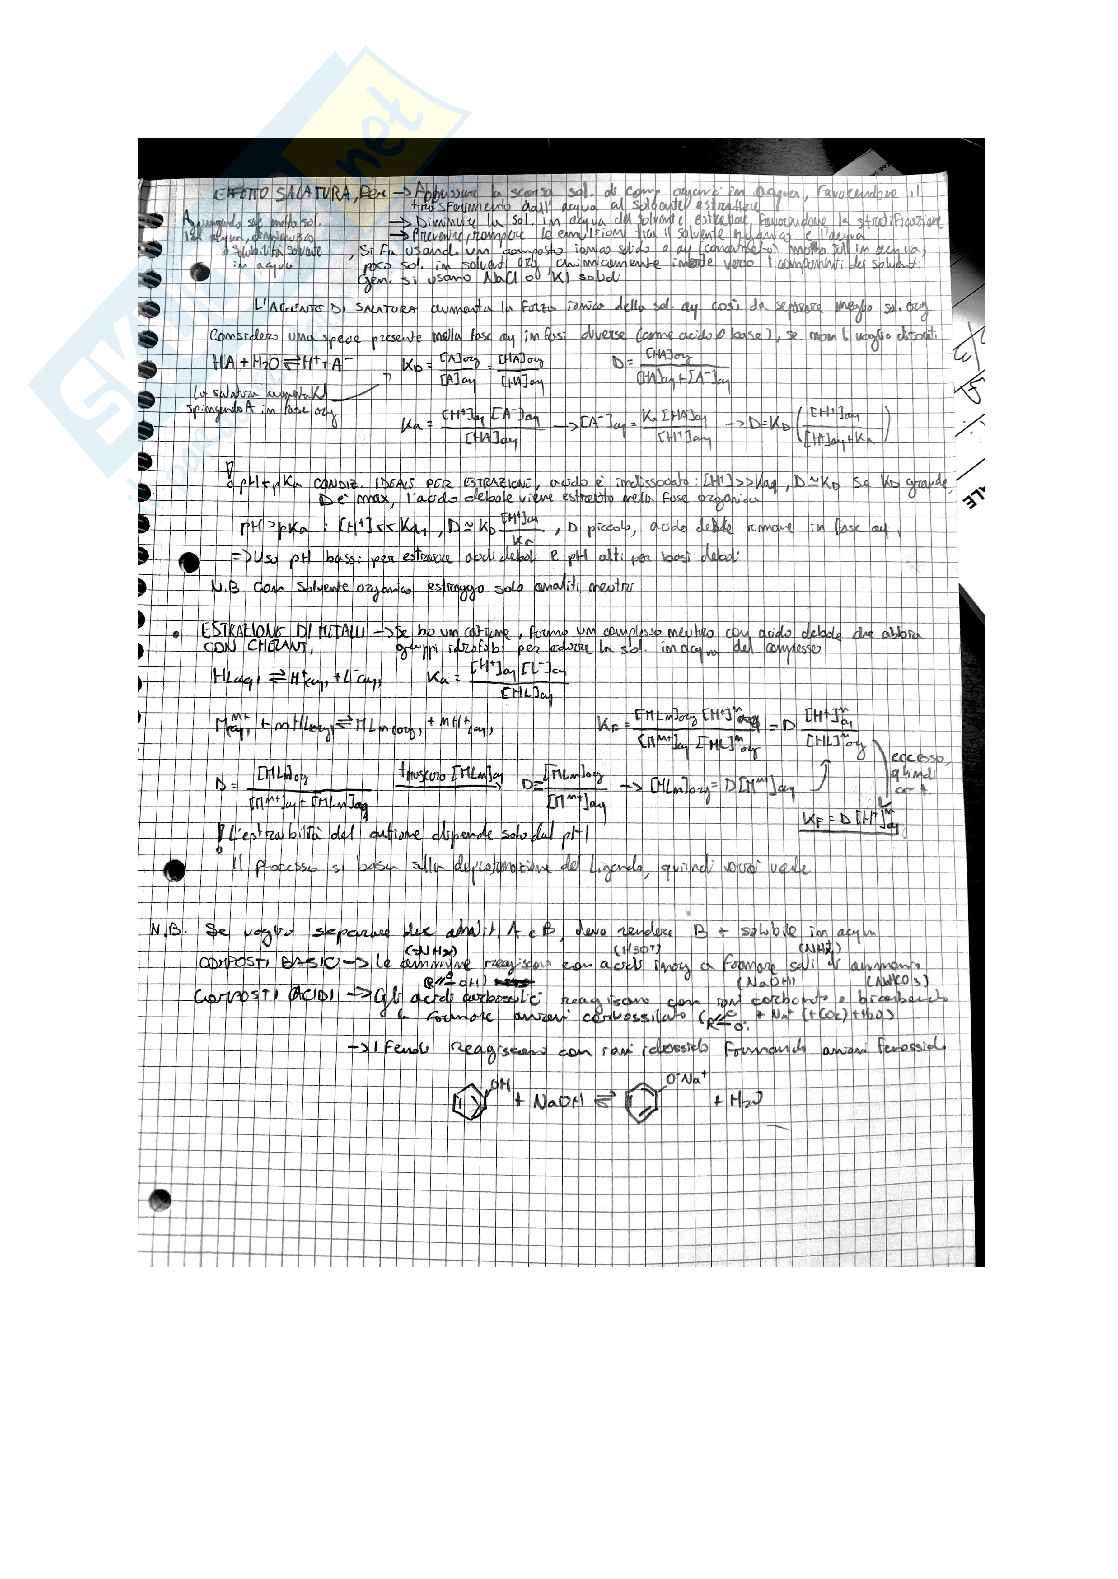 EFFETTO SALATURA, per → Abbassare la scarsa sol. di comp organici in acqua, favorendone il
trasferimento dall'acqua al solvente estraente
Aggiungendo sale molto sol. → Diminuire la sol. in acqua del solvente estraente favorendone la stratificazione
in acqua, diminuisco → Prevenire/rompere le emulsioni tra il solvente organico e l'acqua
solubilità solvente , Si fa usando un composto ionico solido e molto sol. in acqua,
in acqua poco sol. in solvent org, chimicamente inerte verso i componenti del solvente
Gen. si usano NaCl o KI solidi
L'AGENTE DI SALATURA aumenta la forza ionica della sol. aq così da separare meglio sol. org
Considero una specie presente nella fase aq in fasi diverse (come acido o base), se non voglio
HA + H2O ⇌ H+ + A- KD = [A]org/[A]aq = [HA]org/[HA]aq D = [HA]org/([HA]aq + [A-]aq)
La salatura aumenta KD
spingendo A in fase org
Ka = [H+]aq [A-]aq/[HA]aq → [A-]aq = Ka [HA]aq/[H+]aq → D = KD ([H+]aq/([H+]aq + Ka))
! pH < pKa CONDIZ. IDEALI PER ESTRAZIONE, acido è indissociato: [H+] >> Ka, D ≃ KD Se KD grande,
D è max, l'acido debole viene estratto nella fase organica
pH > pKa : [H+] << Ka, D ≃ KD [H+]aq/Ka, D piccolo, acido debole rimane in fase aq.
=> Uso pH bassi per estrarre acidi deboli e pH alti per basi deboli
N.B. Con solvente organico estraggo solo analiti neutri
• ESTRAZIONE DI METALLI → Se ho un catione, formo un complesso neutro con acido debole che abbia
CON CHELANTI, gruppi idrofobi per ridurre la sol. in acqua del complesso
HL(aq) ⇌ H+(aq) + L-(aq) Ka = [H+]aq [L-]aq/[HL]aq
Mn+(aq) + nHL(org) ⇌ MLn(org) + nH+(aq) KF = [MLn]org [H+]n aq/[Mn+]aq [HL]n org = D [H+]n aq/[HL]n org
eccesso,
quindi
cost.
D = [MLn]org/([Mn+]aq + [MLn]aq) trascuro [MLn]aq → D = [MLn]org/[Mn+]aq → [MLn]org = D[Mn+]aq
KF = D [H+]n aq
! L'estraibilità del catione dipende solo dal pH
Il processo si basa sulla deprotonazione del Ligando, quindi
N.B. Se voglio separare due analiti A e B, devo rendere B + solubile in acqua
(-NH2) (H3O+) (NH4+)
COMPOSTI BASICI → Le ammine reagiscono con acidi inorg a formare sali di ammonio
(NaOH) (NaHCO3)
COMPOSTI ACIDI → Gli acidi carbossilici reagiscono con ioni carbonato o bicarbonato
a formare anioni carbossilato (R-C=O O- + Na+ (+CO2) + H2O)
→ I fenoli reagiscono con ioni idrossido formando anioni fenossido
OH + NaOH ⇌ O-Na+ + H2O